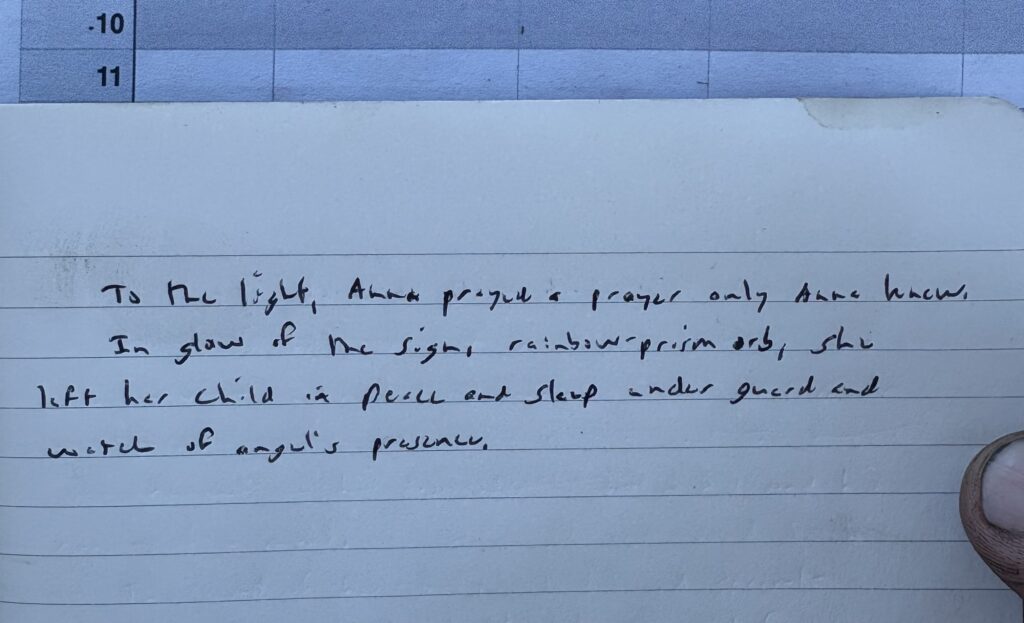 10
11
To the light, Anna prayed a prayer only Anna knew.
In glow of the sign, rainbow-prism orb, she
left her child in peace and sleep under guard and
watch of angel's presence.